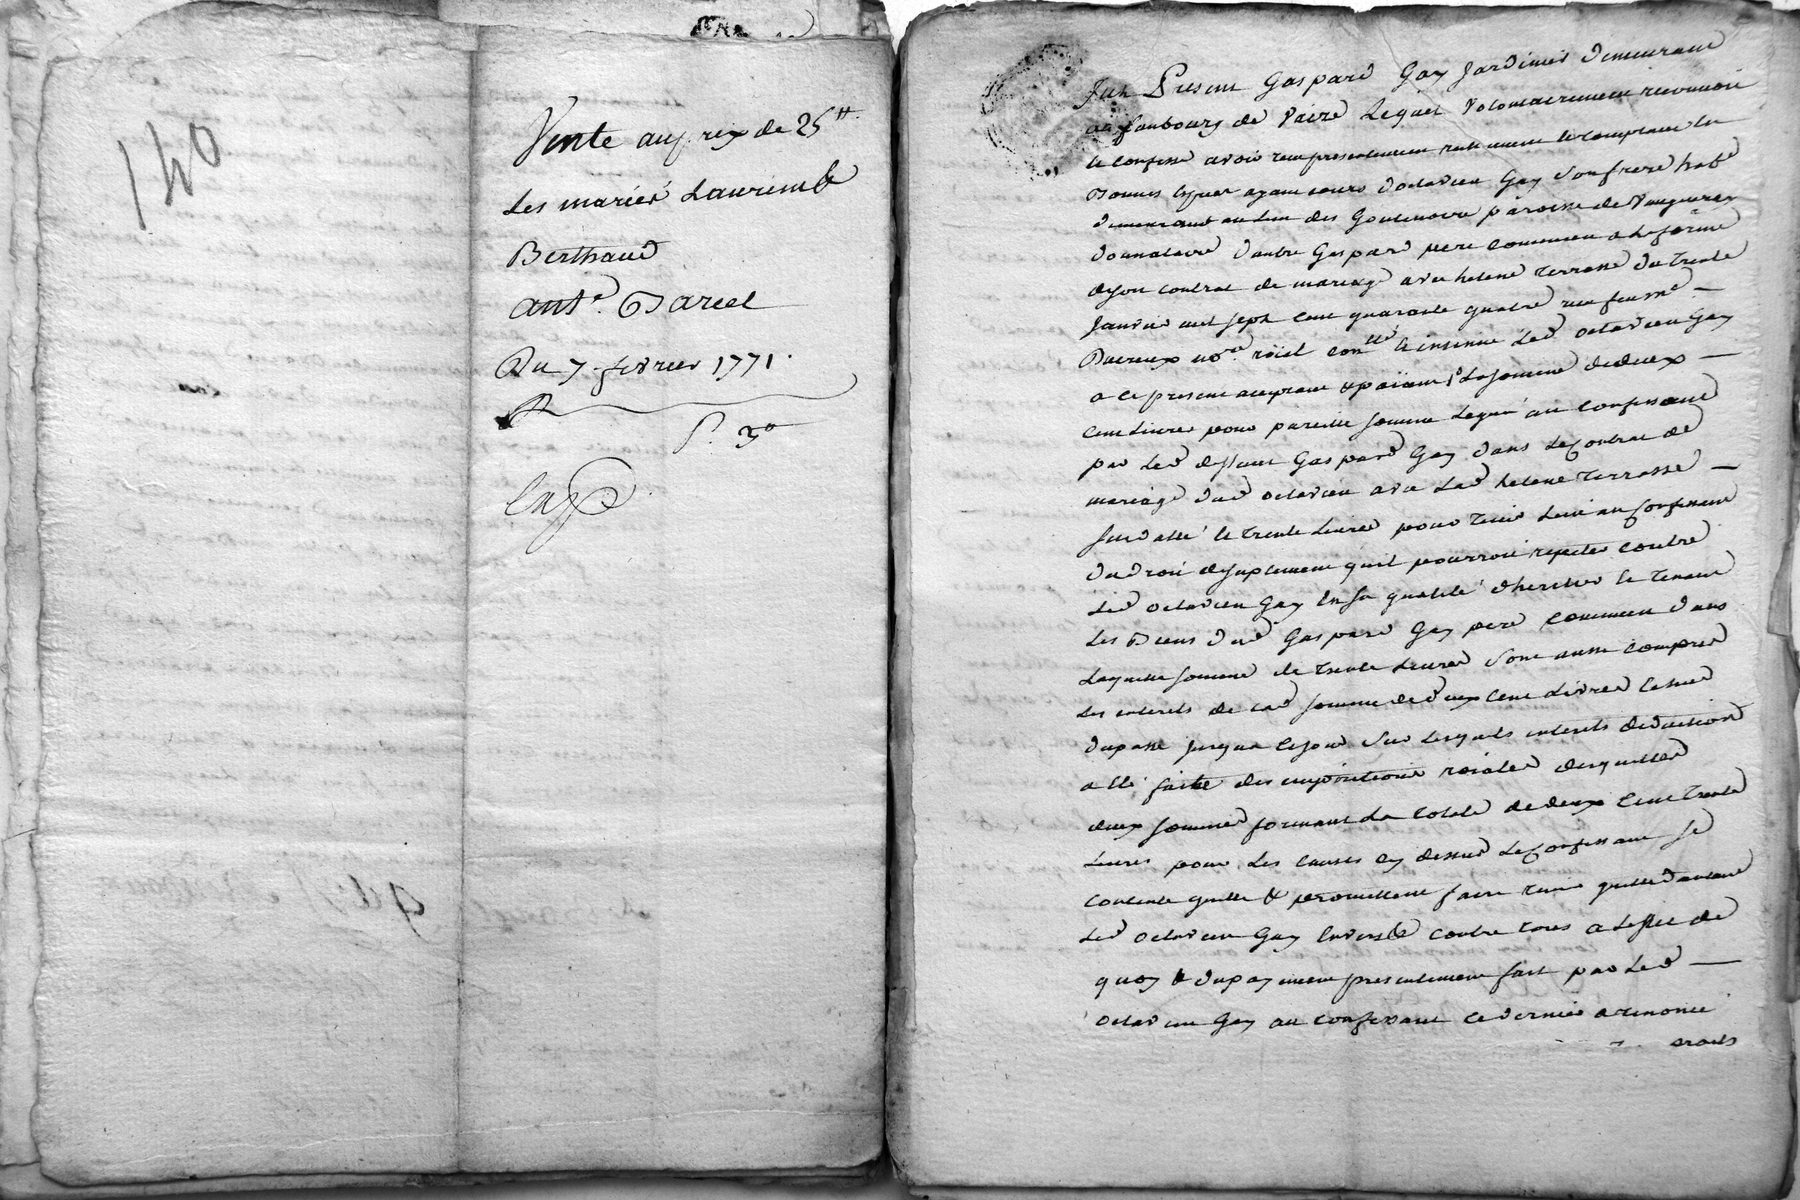 140
Vente au prix de 25 ₶
Les mariés Laurent &
Berthaud
ant.e Darel
Du 7 fevrier 1771.
P. 3.o
Fut Present Gaspard Gay Jardinier demeurant
au faubourg de Vaise Lequel volontairement reconnoit
et confesse avoir reçu presentement reellement et comptant en
Bonnes especes ayant cours d'octavien Gay son frere hab.t
demeurant au lieu des Goutenoire paroisse de Vaugneray
donnataire d'autre Gaspard pere commun a la forme
de son contrat de mariage avec helene Terrasse du Trente
Janvier mil sept cent quarante quatre reçu feu m.e —
Ducreux no.re roial con.llé et insinué Led. octavien Gay
a ce present acceptant & païant La somme de deux —
Cent Livres pour pareille somme Leguée au Confessant
par Led. deffunt Gaspard Gay dans Le Contrat de
mariage dud. octavien avec Lad. helene Terrasse —
susdatté et trente Livres pour tenir Lieu au Confessant
du droit de suplement qu'il pourroit repeter contre
Led. octavien Gay En sa qualité d'heritier et tenant
Les Biens dud. Gaspard Gay pere commun dans
Laquelle somme de trente Livres sont aussi compris
Les interets de lad. somme de deux Cent Livres
du passé jusqu'a ce jour sur lesquels interets deduction
a été faite des impositions roiales desquelles
deux sommes formant La totale de deux Cent Trente
Livres pour Les causes cy dessus Le Confessant se
contente quitte & promettent faire tenir quitte
Led. octavien Gay Envers & contre tous a L'effet de
quoy & du payement presentement fait par Led. —
octavien Gay au confessant ce dernier a renoncé
droits